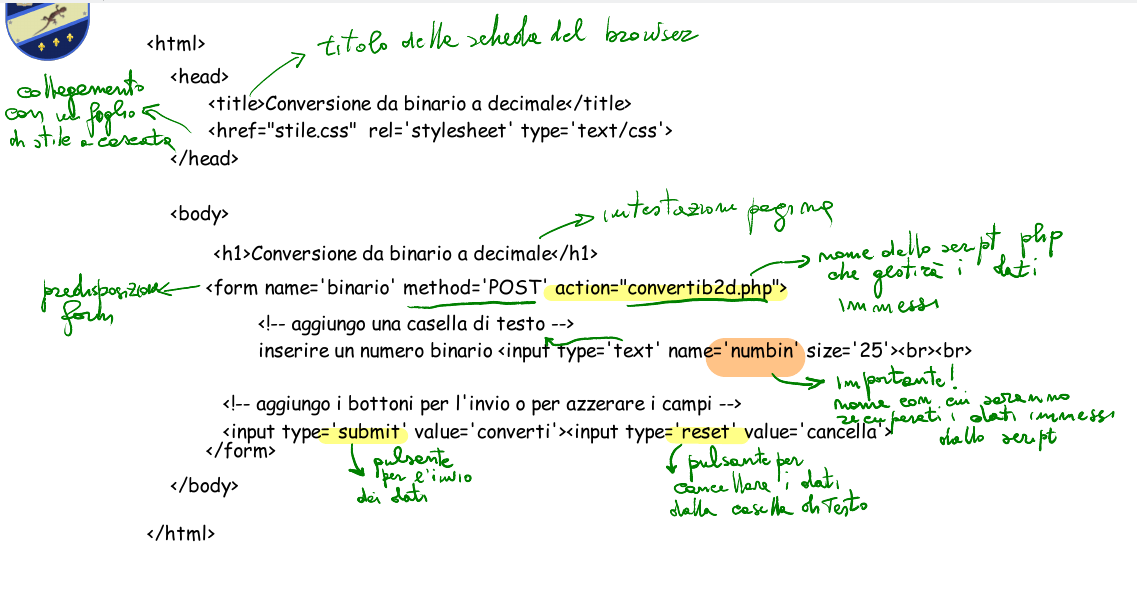 <html>
titolo della scheda del browser
<head>
collegamento
con un foglio
di stile a cascata
<title>Conversione da binario a decimale</title>
<href="stile.css"  rel='stylesheet' type='text/css'>
</head>
<body>
intestazione pagina
<h1>Conversione da binario a decimale</h1>
nome dello script php
che gestirà i dati
immessi
predisposizione
form
<form name='binario' method='POST' action="convertib2d.php">
<!-- aggiungo una casella di testo -->
inserire un numero binario <input type='text' name='numbin' size='25'><br><br>
importante!
nome con cui saranno
recuperati i dati immessi
dallo script
<!-- aggiungo i bottoni per l'invio o per azzerare i campi -->
<input type='submit' value='converti'><input type='reset' value='cancella'>
</form>
pulsante
per l'invio
dei dati
pulsante per
cancellare i dati
dalla casella di testo
</body>
</html>